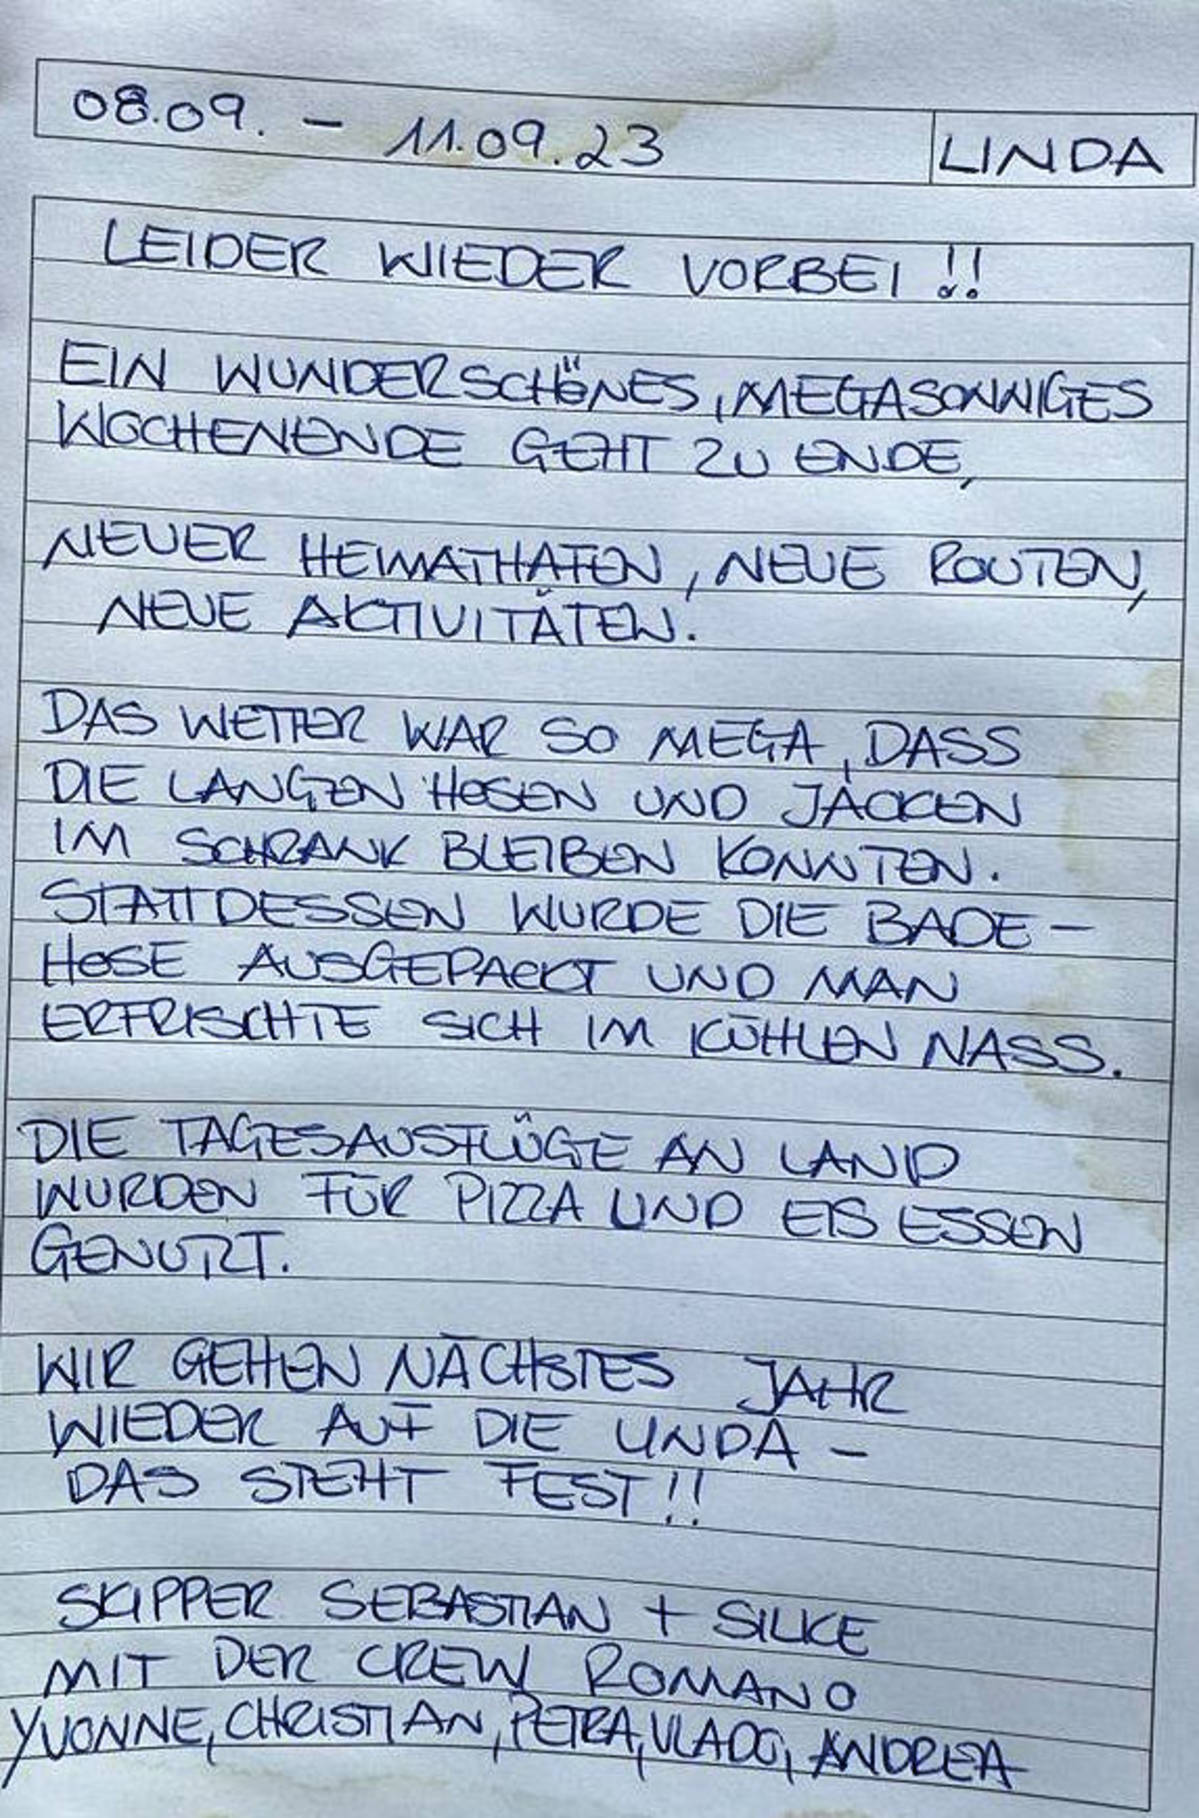 08.09. - 11.09.23 LINDA
LEIDER WIEDER VORBEI !!
EIN WUNDERSCHÖNES, MEGASONNIGES
WOCHENENDE GEHT ZU ENDE,
NEUER HEIMATHAFEN, NEUE ROUTEN,
NEUE AKTIVITÄTEN.
DAS WETTER WAR SO MEGA, DASS
DIE LANGEN HOSEN UND JACKEN
IM SCHRANK BLEIBEN KONNTEN.
STATTDESSEN WURDE DIE BADE-
HOSE AUSGEPACKT UND MAN
ERFRISCHTE SICH IM KÜHLEN NASS.
DIE TAGESAUSFLÜGE AN LAND
WURDEN FÜR PIZZA UND EIS ESSEN
GENUTZT.
WIR GEHEN NÄCHSTES JAHR
WIEDER AUF DIE LINDA -
DAS STEHT FEST!!
SKIPPER SEBASTIAN + SILKE
MIT DER CREW ROMANO
YVONNE, CHRISTIAN, PETRA, VLADO, ANDREA